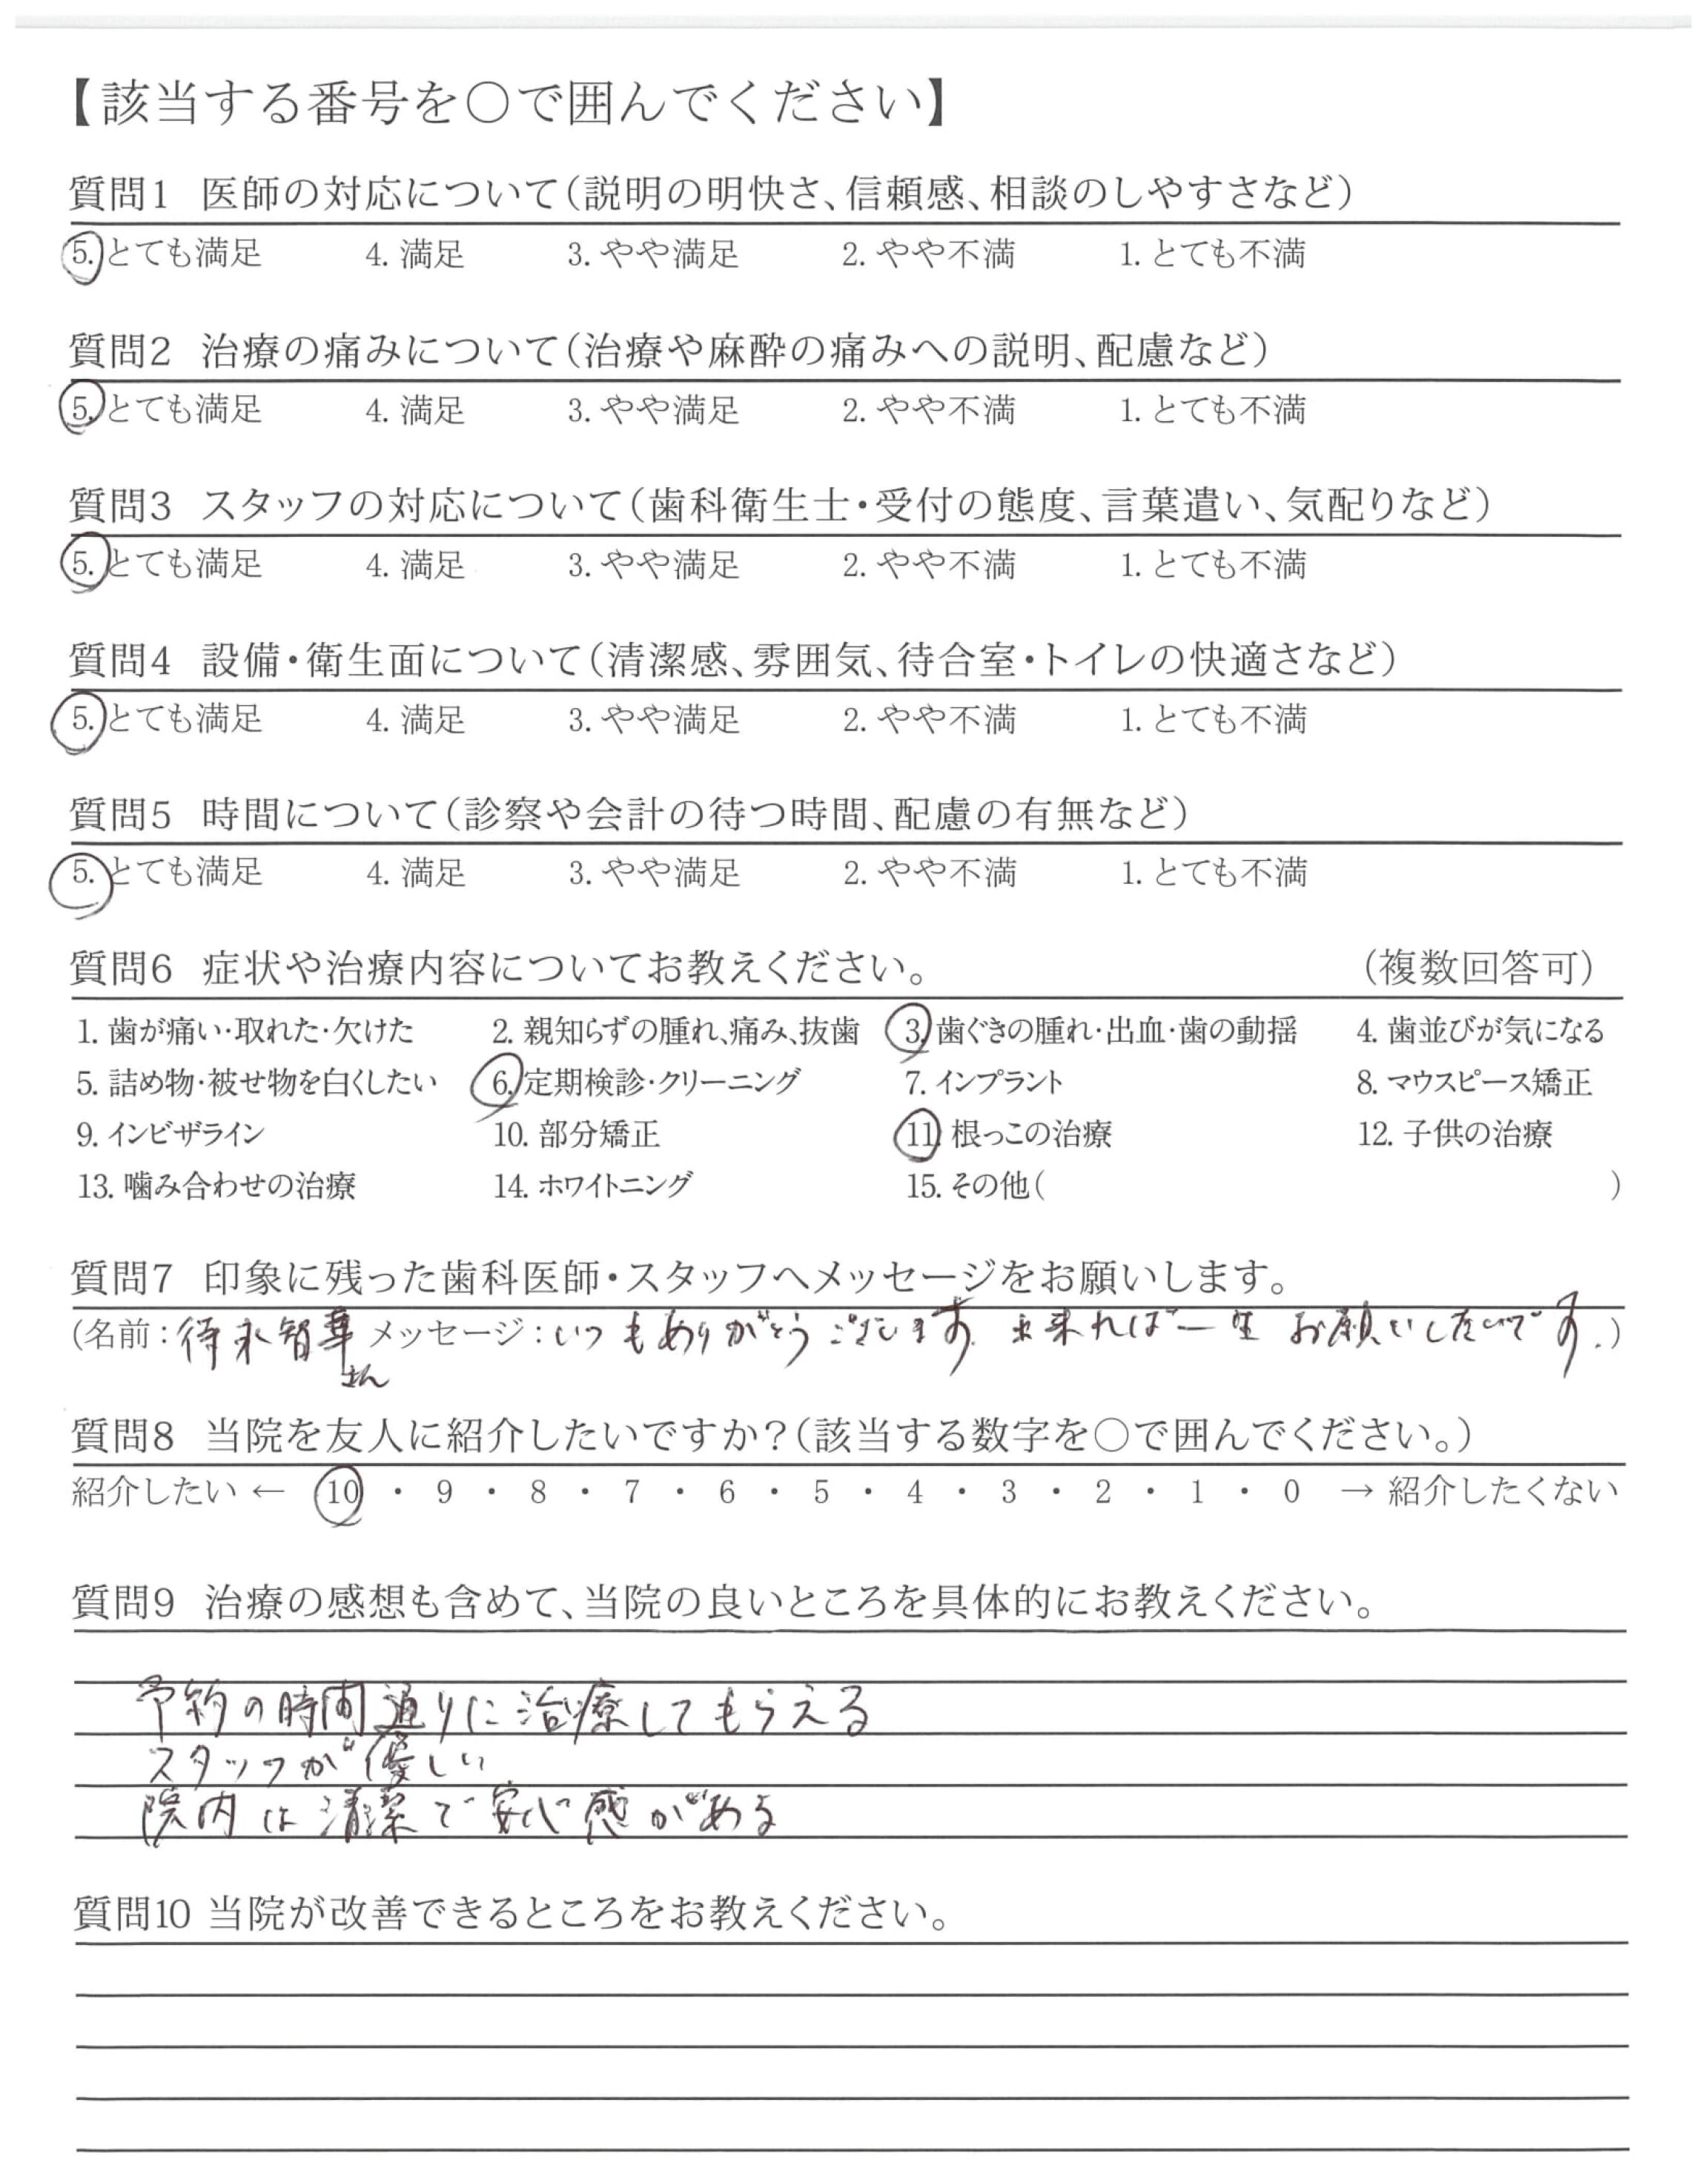 【該当する番号を○で囲んでください】
質問1 医師の対応について(説明の明快さ、信頼感、相談のしやすさなど)
5. とても満足 4. 満足 3. やや満足 2. やや不満 1. とても不満
質問2 治療の痛みについて(治療や麻酔の痛みへの説明、配慮など)
5. とても満足 4. 満足 3. やや満足 2. やや不満 1. とても不満
質問3 スタッフの対応について(歯科衛生士・受付の態度、言葉遣い、気配りなど)
5. とても満足 4. 満足 3. やや満足 2. やや不満 1. とても不満
質問4 設備・衛生面について(清潔感、雰囲気、待合室・トイレの快適さなど)
5. とても満足 4. 満足 3. やや満足 2. やや不満 1. とても不満
質問5 時間について(診察や会計の待つ時間、配慮の有無など)
5. とても満足 4. 満足 3. やや満足 2. やや不満 1. とても不満
質問6 症状や治療内容についてお教えください。 (複数回答可)
1. 歯が痛い・取れた・欠けた 2. 親知らずの腫れ、痛み、抜歯 3. 歯ぐきの腫れ・出血・歯の動揺 4. 歯並びが気になる
5. 詰め物・被せ物を白くしたい 6. 定期検診・クリーニング 7. インプラント 8. マウスピース矯正
9. インビザライン 10. 部分矯正 11. 根っこの治療 12. 子供の治療
13. 噛み合わせの治療 14. ホワイトニング 15. その他( )
質問7 印象に残った歯科医師・スタッフへメッセージをお願いします。
(名前:待永智華さん メッセージ:いつもありがとうございます。出来れば一生お願いしたいです.)
質問8 当院を友人に紹介したいですか?(該当する数字を○で囲んでください。)
紹介したい ← 10 ・ 9 ・ 8 ・ 7 ・ 6 ・ 5 ・ 4 ・ 3 ・ 2 ・ 1 ・ 0 → 紹介したくない
質問9 治療の感想も含めて、当院の良いところを具体的にお教えください。
予約の時間通りに治療してもらえる
スタッフが優しい
院内は清潔で安心感がある
質問10 当院が改善できるところをお教えください。